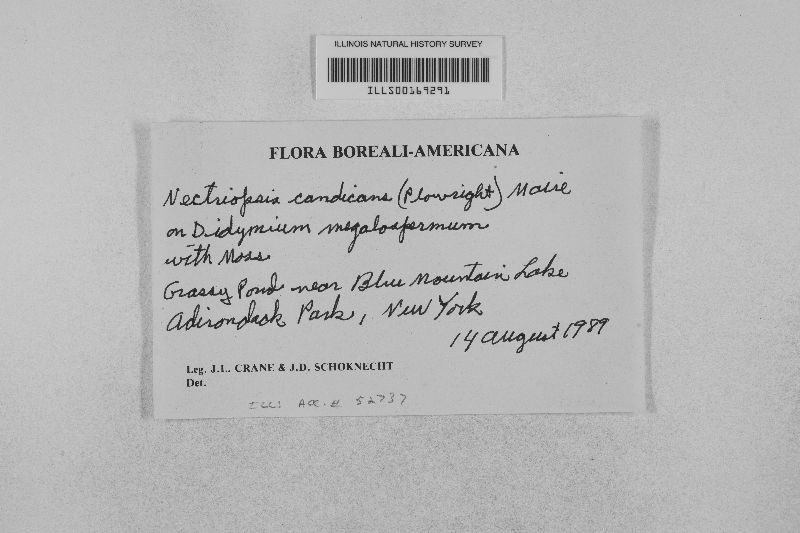 ILLINOIS NATURAL HISTORY SURVEY
ILLS00169291
FLORA BOREALI-AMERICANA
Nectriopsis candicans (Plowright) Maire
on Didymium megalospermum
with Moss
Grassy Pond near Blue Mountain Lake
Adirondack Park, New York
14 August 1989
Leg. J.L. CRANE & J.D. SCHOKNECHT
Det.
ILLS Acc. # 52737